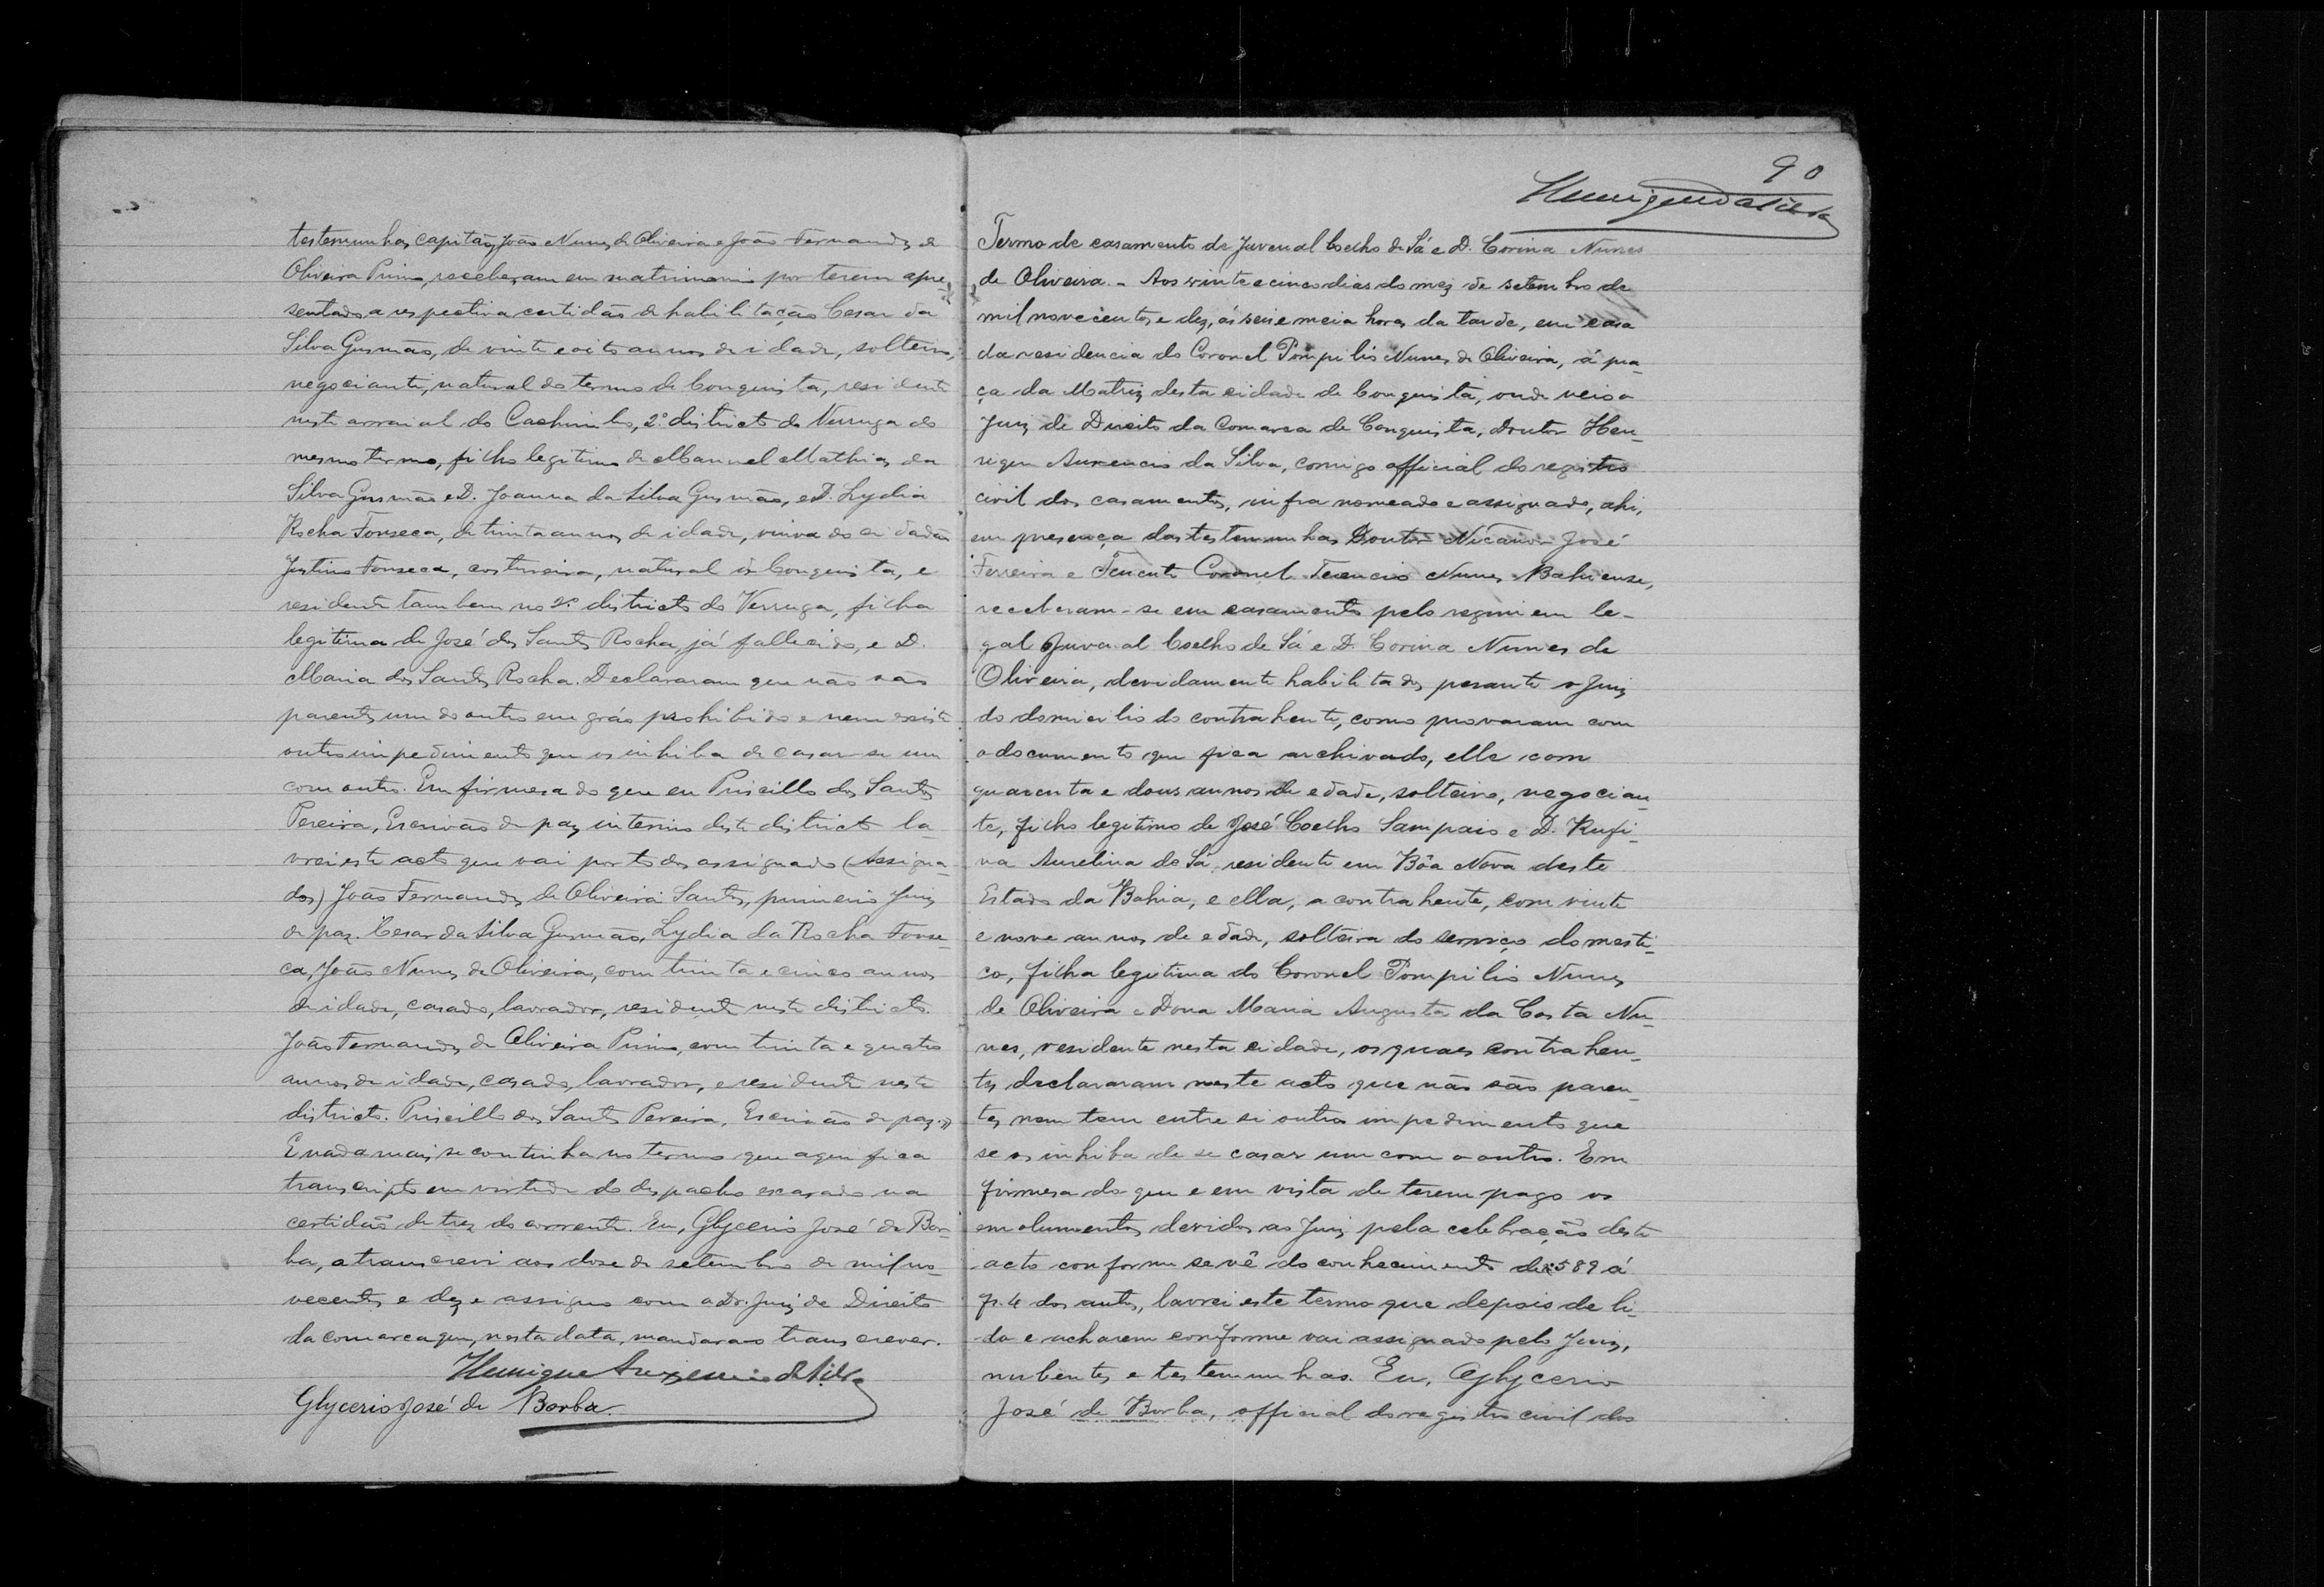 testemunhas capitão João Nunes de Oliveira e João Fernandes de
Oliveira Primo, receberam em matrimonio por terem apre-
sentado a respectiva certidão de habilitação Cesar da
Silva Gusmão, de vinte e oito annos de idade, solteiro,
negociante, natural do termo de Conquista, residente
neste arraial do Cachimbo, 2º districto do Verruga do
mesmo termo, filho legitimo de Manuel Mathias da
Silva Gusmão e D. Joanna da Silva Gusmão, e D. Lydia
Rocha Fonseca, de trinta annos de idade, viuva do cidadão
Justino Fonseca, costureira, natural de Conquista, e
residente tambem no 2º districto do Verruga, filha
legitima de José dos Santos Rocha, já fallecido, e D.
Maria dos Santos Rocha. Declararam que não são
parentes um do outro em gráo prohibido e nem existe
outro impedimento que os inhiba de casar-se um
com outro. Em firmesa do que eu Priscillo dos Santos
Pereira, Escrivão de paz interino deste districto la-
vrei este acto que vai por todos assignado (Assigna-
dos) João Fernandes de Oliveira Santos, primeiro Juiz
de paz. Cesar da Silva Gusmão, Lydia da Rocha Fonse-
ca, João Nunes de Oliveira, com trinta e cinco annos
de idade, casado, lavrador, residente neste districto.
João Fernandes de Oliveira Primo, com trinta e quatro
annos de idade, casado, lavrador, e residente neste
districto. Priscillo dos Santos Pereira, Escrivão de paz.»
E nada mais se continha no termo que aqui fica
transcripto em virtude do despacho exarado na
certidão de trez do corrente. Eu, Glycerio José de Bor-
ba, o transcrevi aos dose de setembro de mil no-
vecentos e dez e assigno com o Dr. Juiz de Direito
da comarca que, nesta data, mandara-o transcrever.
Henrique Auxencio da Silva
Glycerio José de Borba.
90
Henrique da Silva
Termo de casamento de Juvenal Coelho de Sá e D. Corina Nunes
de Oliveira. - Aos vinte e cinco dias do mez de setembro de
mil novecentos e dez, ás seis e meia horas da tarde, em casa
da residencia do Coronel Pompilio Nunes de Oliveira, á pra-
ça da Matriz desta cidade de Conquista, onde veio o
Juiz de Direito da Comarca de Conquista, Doutor Hen-
rique Auxencio da Silva, comigo official do registro
civil dos casamentos, infra nomeado e assignado, ahi,
em presença das testemunhas Doutor Nicanor José
Ferreira e Tenente Coronel Terencio Nunes Bahiense,
receberam-se em casamento pelo regimem le-
gal Juvenal Coelho de Sá e D. Corina Nunes de
Oliveira, devidamente habilitados perante o Juiz
do domicilio do contrahente, como provaram com
o documento que fica archivado, elle com
quarenta e dous annos de edade, solteiro, negocian-
te, filho legitimo de José Coelho Sampaio e D. Rufi-
na Aurelina de Sá, residente em Bôa Nova deste
Estado da Bahia, e ella, a contrahente, com vinte
e nove annos de edade, solteira do serviço domesti-
co, filha legitima do Coronel Pompilio Nunes
de Oliveira e Dona Maria Augusta da Costa Nu-
nes, residente nesta cidade, os quaes contrahen-
tes declararam neste acto que não são paren-
tes nem tem entre si outro impedimento que
se os inhiba de se casar um com o outro. Em
firmesa do que e em vista de terem pago os
emolumentos devidos ao Juiz pela celebração deste
acto conforme se vê do conhecimento de nº 589 á
fl. 4 dos autos, lavrei este termo que depois de li-
do e acharem conforme vai assignado pelo Juiz,
nubentes e testemunhas. Eu, Glycerio
José de Borba, official do registro civil dos